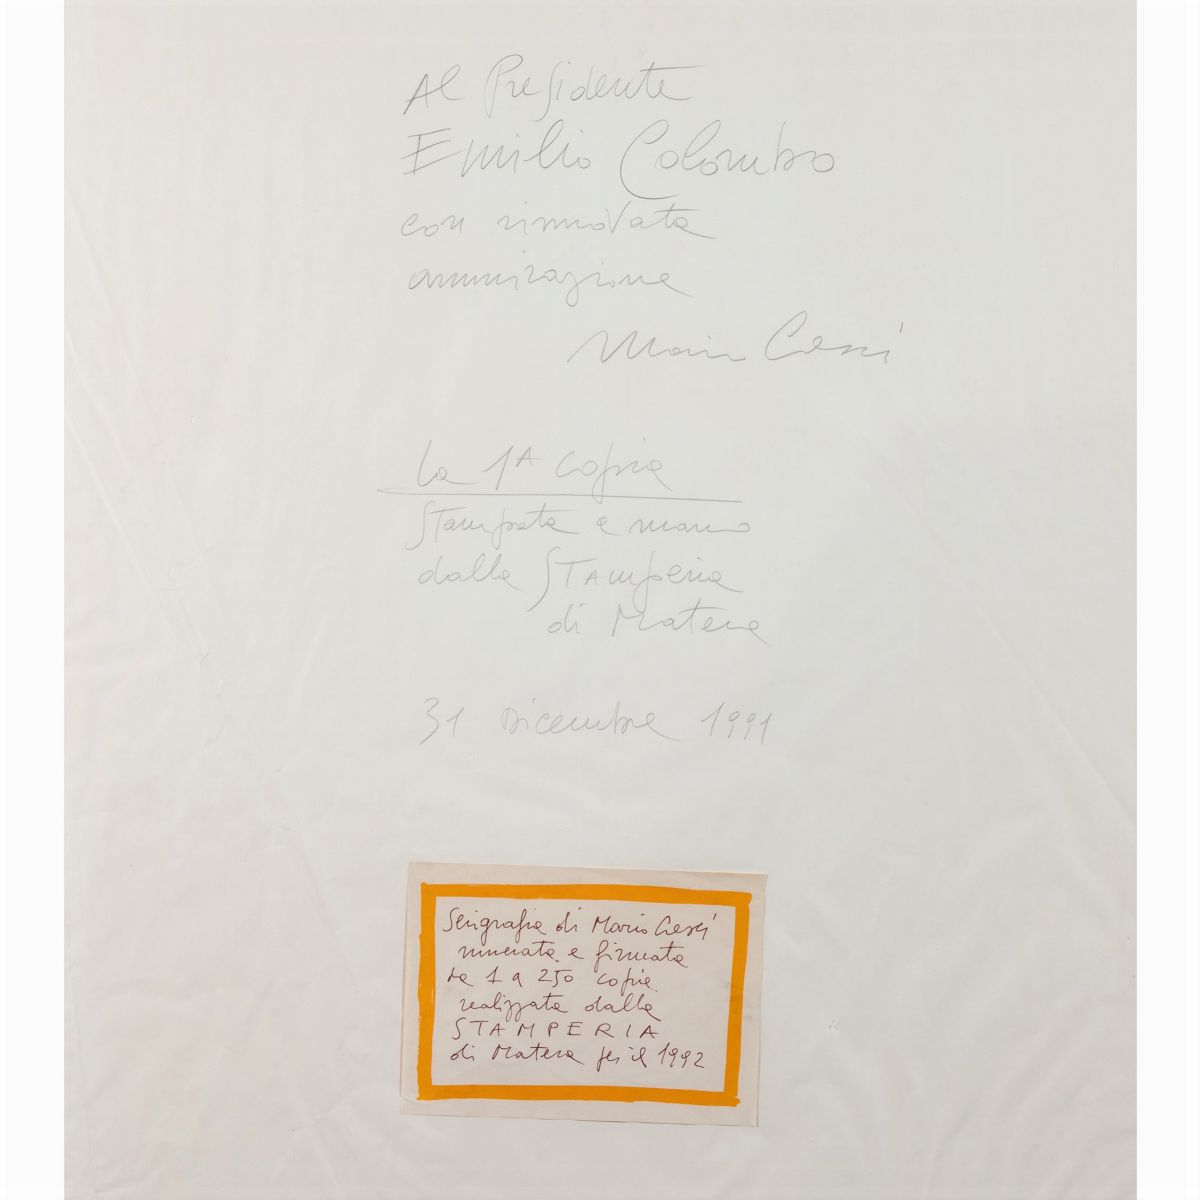 Al Presidente
Emilio Colombo
con rinnovata
ammirazione
Mario Cresci
la 1A copia
Stampata a mano
dalla STAmperia
di Matera
31 Dicembre 1991
Serigrafia di Mario Cresci
numerata e firmata
da 1 a 250 copie
realizzata dalla
STAMPERIA
di Matera per il 1992